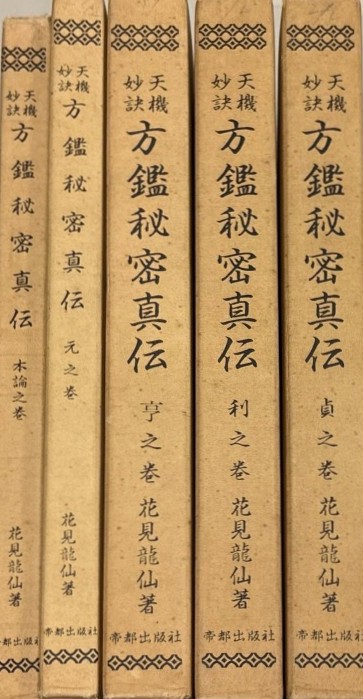 天機
妙訣
方鑑秘密真伝
本論之巻
花見龍仙著
帝都出版社
天機
妙訣
方鑑秘密真伝
元之巻
花見龍仙著
帝都出版社
天機
妙訣
方鑑秘密真伝
亨之巻
花見龍仙著
帝都出版社
天機
妙訣
方鑑秘密真伝
利之巻
花見龍仙著
帝都出版社
天機
妙訣
方鑑秘密真伝
貞之巻
花見龍仙著
帝都出版社